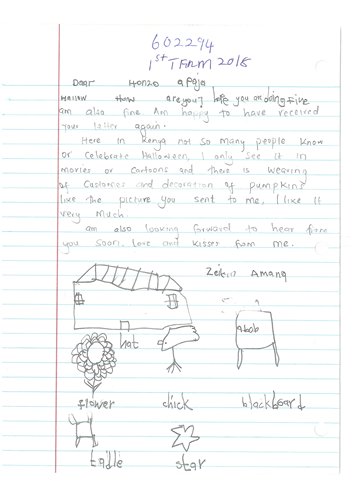 602294
1st TERM 2018
Dear Honza a Pája
Hallow How are you? hope you are doing Five
am also fine. Am happy to have received
your letter again.
Here in Kenya not so many people know
or celebrate Halloween, I only see it in
movies or cartoons and there is wearing
of Costomes and decoration of pumpkins
like the picture you sent to me, I like it
very much.
am also looking forward to hear from
you soon. Love and kisses from me.
Amana
hat
abob
flower chick blackboard
tadle star